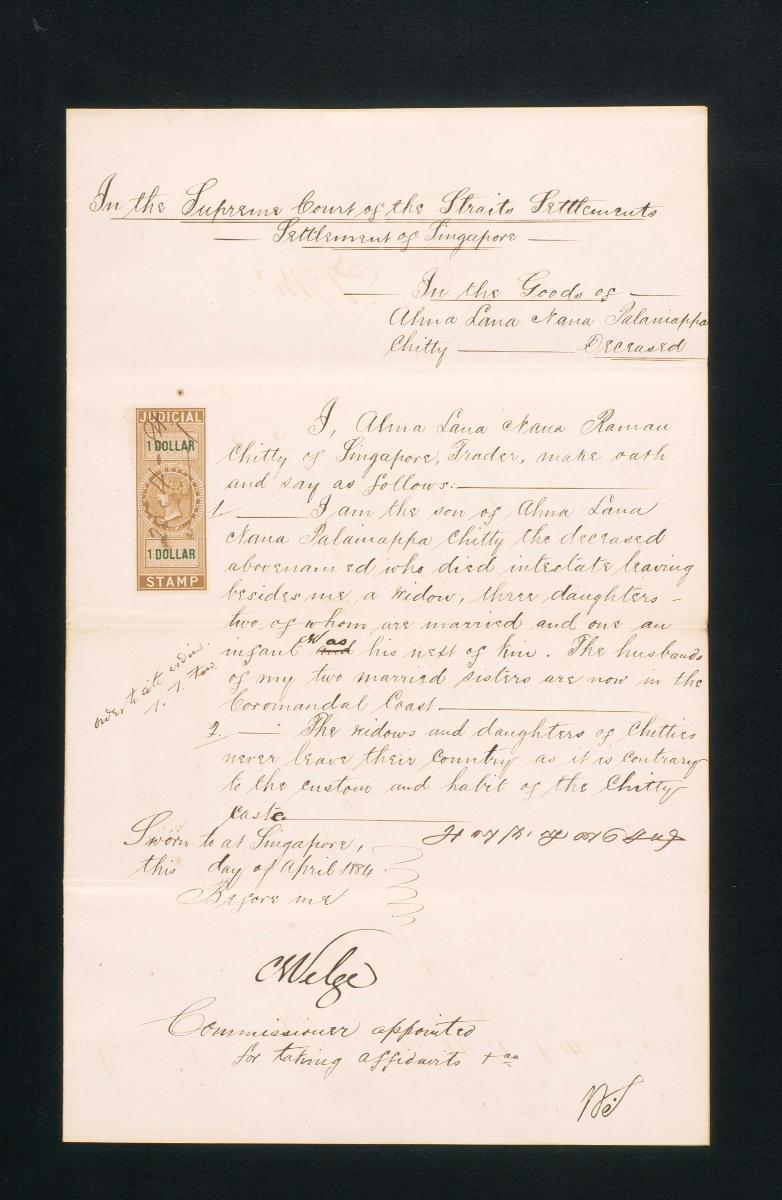 In the Supreme Court of the Straits Settlements
Settlement of Singapore
In the Goods of
Ahna Lana Nana Palaniappa
Chitty Deceased
JUDICIAL
1 DOLLAR
1 DOLLAR
STAMP
I, Ahna Lana Nana Raman
Chitty of Singapore, Trader, make oath
and say as follows:
1. I am the son of Ahna Lana
Nana Palaniappa Chitty the deceased
abovenamed who died intestate leaving
besides me a widow, three daughters –
two of whom are married and one an
infant as his next of kin. The husbands
of my two married sisters are now in the
Coromandal Coast
2. The widows and daughters of Chitties
never leave their Country as it is contrary
to the custom and habit of the Chitty
caste
order to cite
Sworn to at Singapore,
this day of April 1884
Before me
Commissioner appointed
for taking affidavits